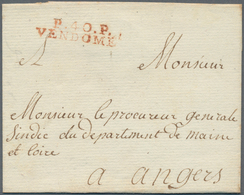 P.40.P.
VENDOME
A Monsieur
Monsieur le procureur generale
sindic du departement de maine
et loire
a angers